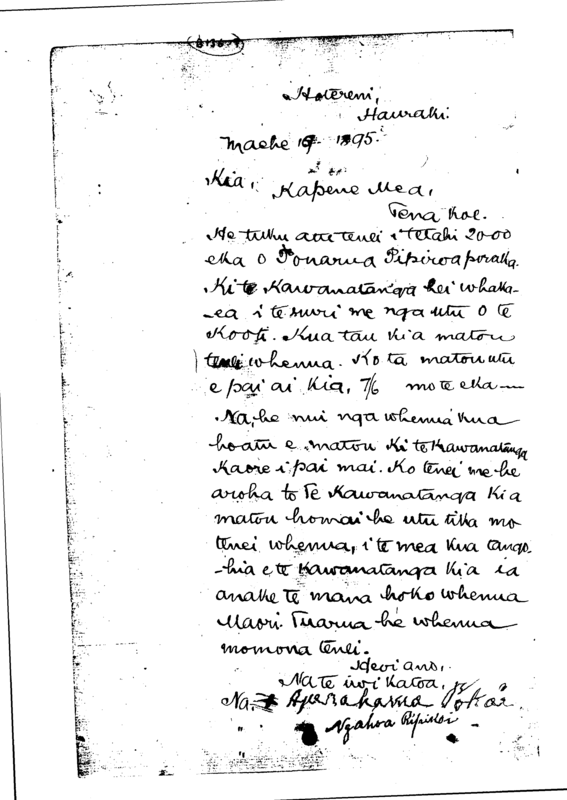 Hotereni,
Hauraki.
Maehe 19 1895.
Kia,
Kapene Mea,
Tena koe.
He tuku atu tenei i tetahi 2000
eka o Tonarua Pipiroa poraka
Ki te Kawanatanga hei whaka-
-ea i te ruri me nga utu o te
Kooti. Kua tau kia matou
tenei whenua. Ko ta matou utu
e pai ai kia, 7/6 mo te eka —
Na, he nui nga whenua kua
hoatu e matou ki te Kawanatanga
Kaore i pai mai. Ko tenei me he
aroha to Te Kawanatanga kia
matou homai he utu tika mo
tenei whenua, i te mea kua tango-
-hia e te Kawanatanga kia ia
anake te mana hoko whenua
Maori. Tuarua he whenua
momona tenei.
Heoi ano,
Na te iwi katoa,
Na Aperahama Pokai
Ngahoa